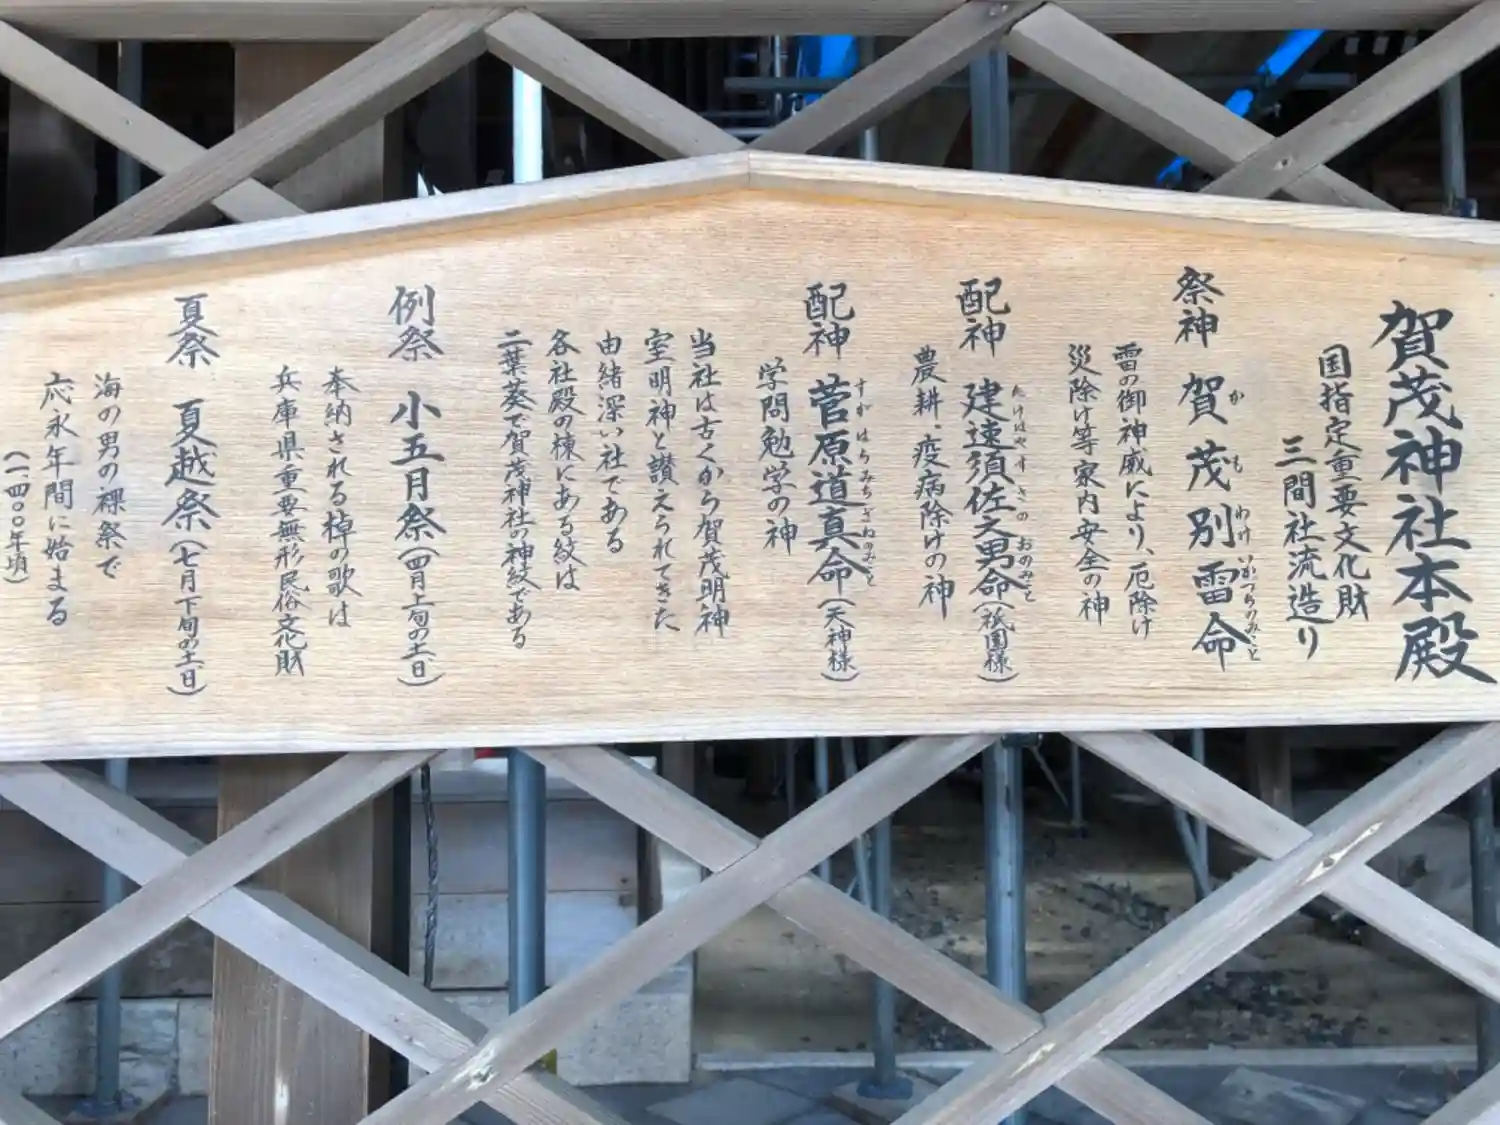 賀茂神社本殿
国指定重要文化財
三間社流造り
祭神 賀茂別雷命
か も わけ いかづちのみこと
雷の御神威により、厄除け
災除け等家内安全の神
配神 建速須佐之男命(祇園様)
たけはやすさのおのみこと
農耕、疫病除けの神
配神 菅原道真命(天神様)
すがはらみちざねのみこと
学問勉学の神
当社は古くから賀茂明神
室明神と讃えられてきた
由緒深い社である
各社殿の棟にある紋は
二葉葵で賀茂神社の神紋である
例祭 小五月祭(四月上旬の土日)
奉納される棹の歌は
兵庫県重要無形民俗文化財
夏祭 夏越祭(七月下旬の土日)
海の男の裸祭で
応永年間に始まる
(一四〇〇年頃)